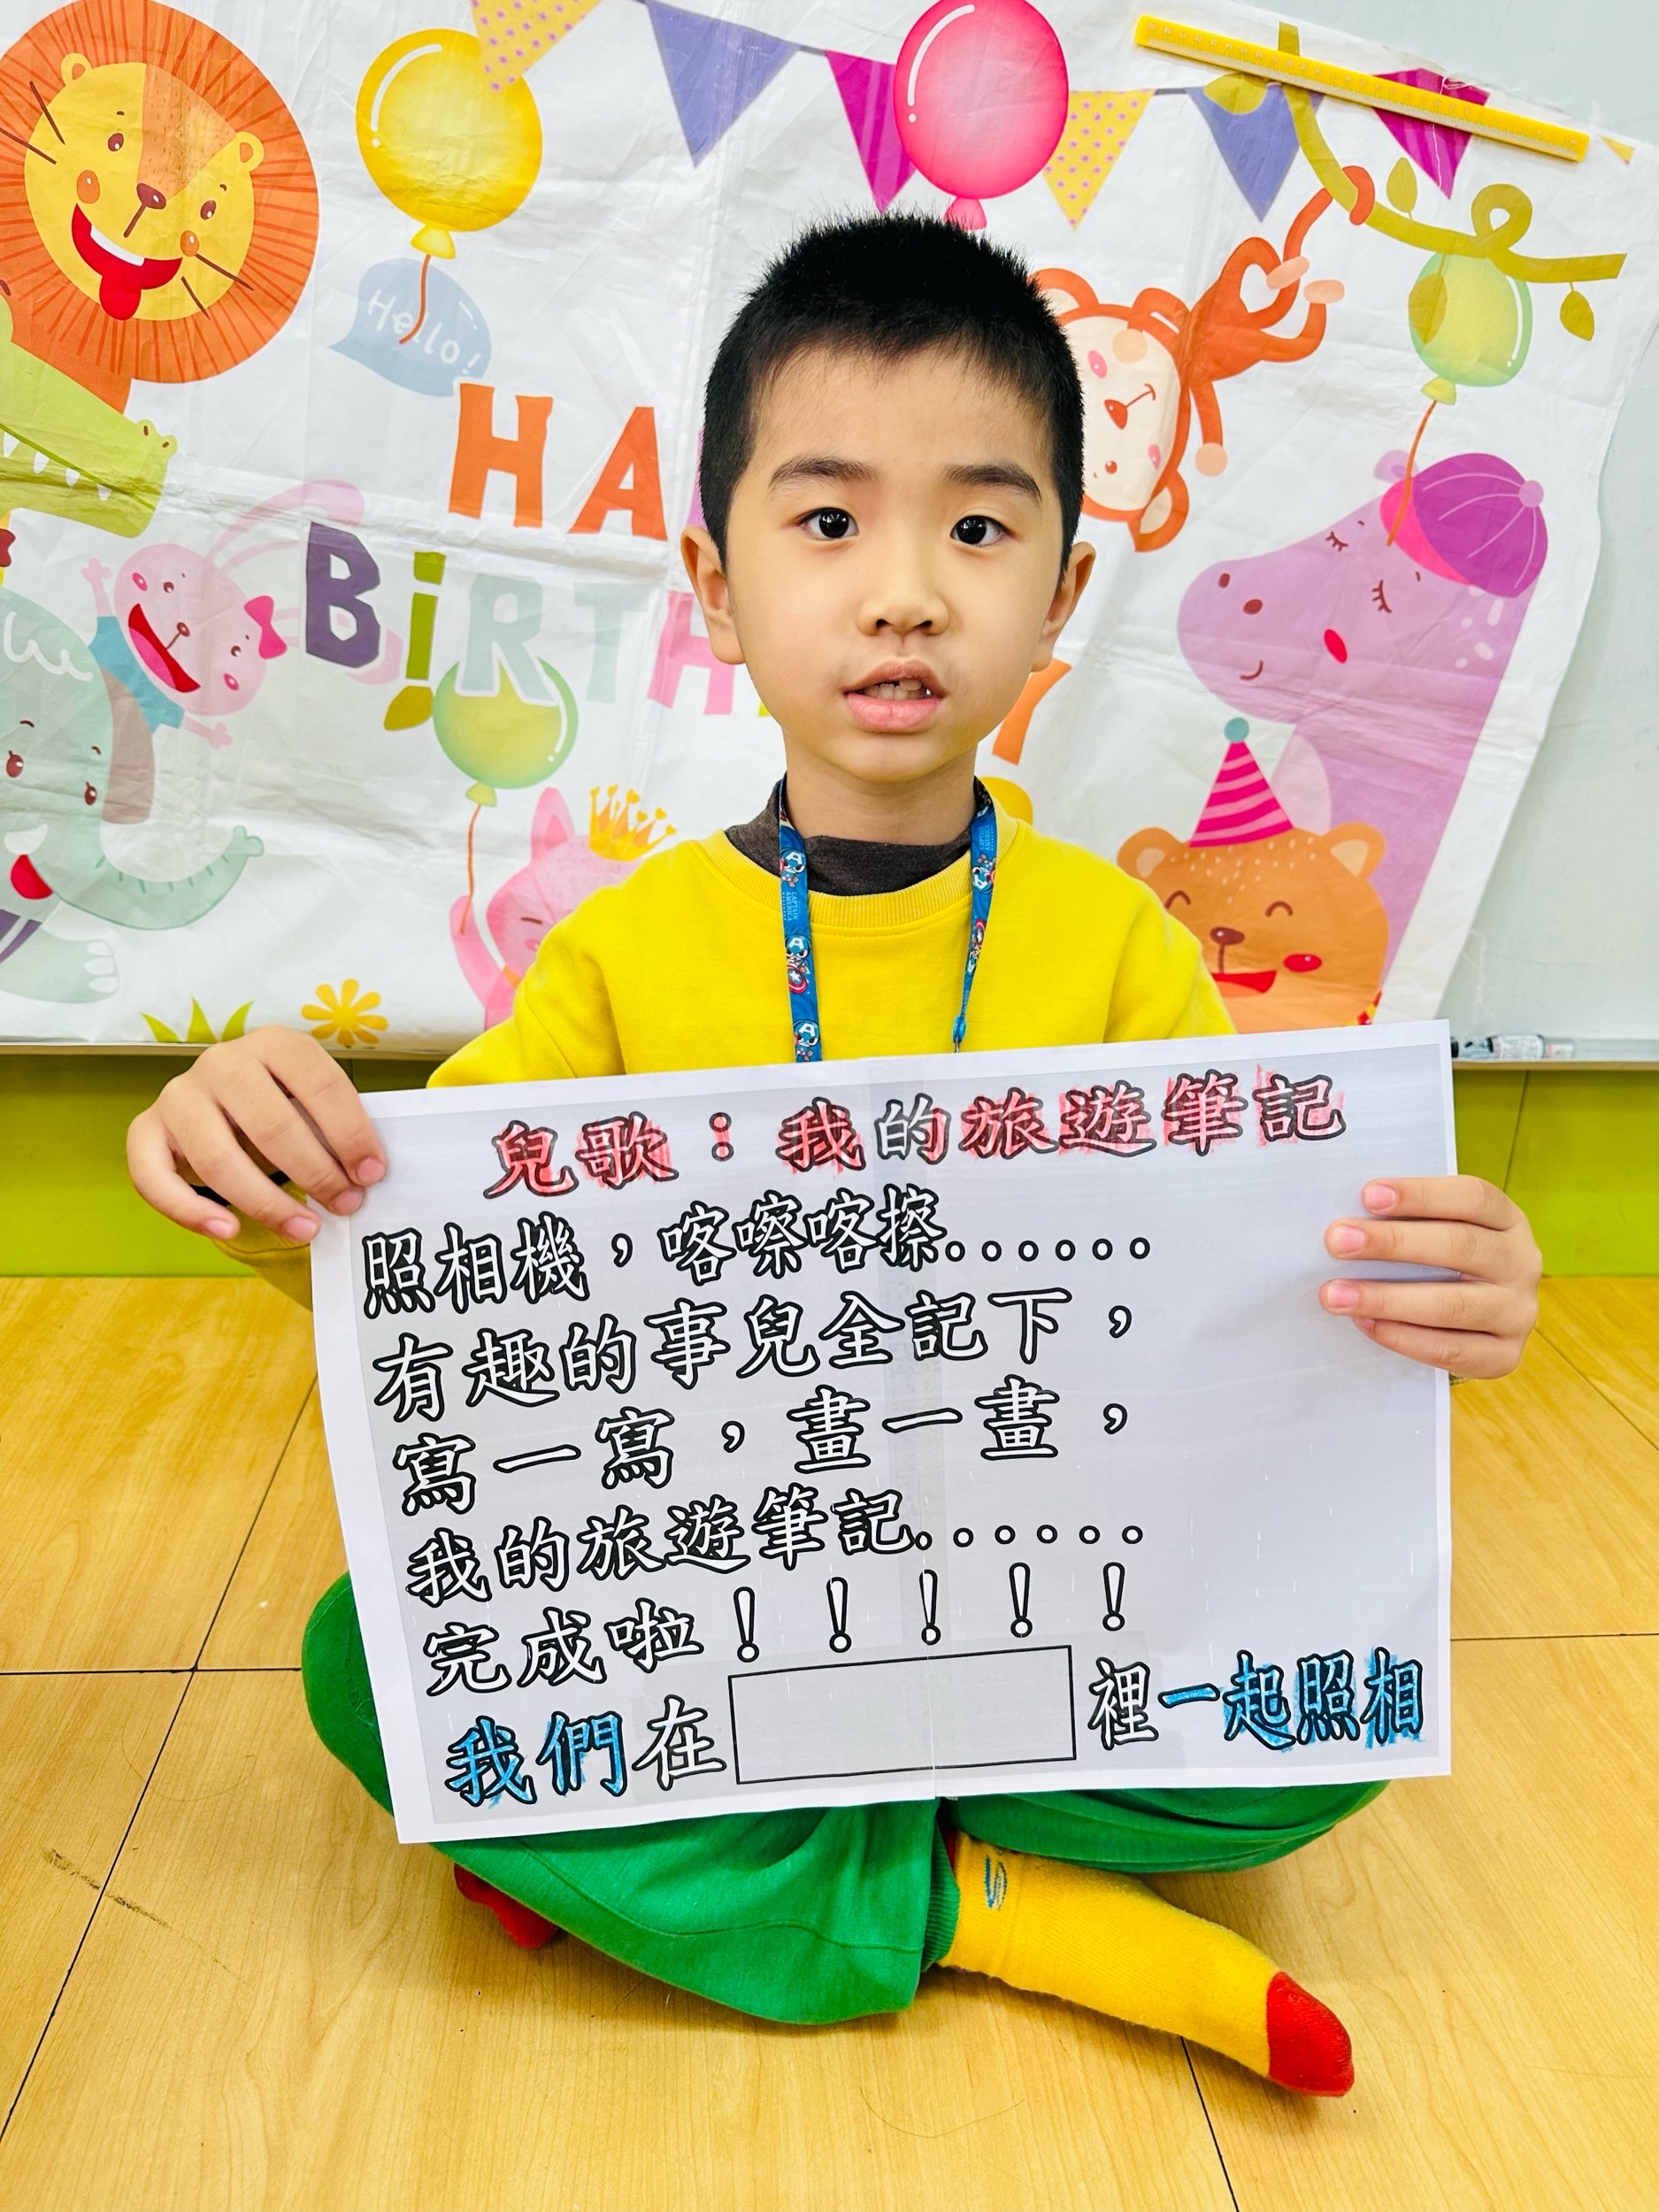 Hello!
HA
BiRTH
Y
兒歌：我的旅遊筆記
照相機，喀嚓喀擦......
有趣的事兒全記下，
寫一寫，畫一畫，
我的旅遊筆記......
完成啦！！！！！
我們在 裡一起照相